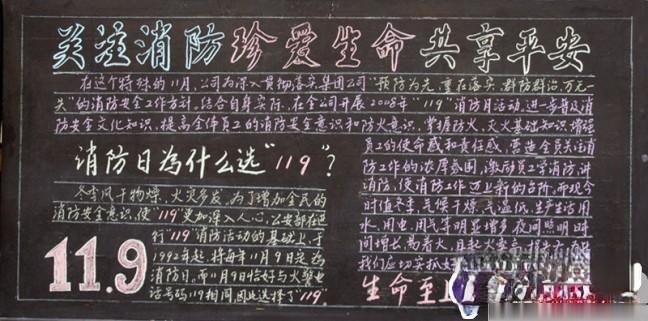 关注消防 珍爱生命 共享平安
在这个特殊的11月，公司为深入贯彻落实集团公司“预防为先，重在落实，群防群治，万无一
失”的消防安全工作方针，结合自身实际，在全公司开展2008年“119”消防月活动，进一步普及消
防安全文化知识，提高全体员工的消防安全意识和防火意识，掌握防火、灭火基础知识，增强
消防日为什么选“119”？
冬季风干物燥，火灾多发，为了增加全民的
消防安全意识，使“119”更加深入人心，公安部在进
行“119”消防活动的基础上，于
1992年起，将每年11月9日定为
消防日。而11月9日恰好与火警电
话号码119相同，因此选择了“119”。
11.9
员工的使命感和责任感，营造全员关注消
防工作的浓厚氛围，激励员工学消防，讲
消防，使消防工作迈上新的台阶。而现今
时值冬季，气候干燥，气温低，生产生活用
水、用电、用气等明显增多，夜间照明时
间增长，易着火，且起火率高
我们应切实
生命至上